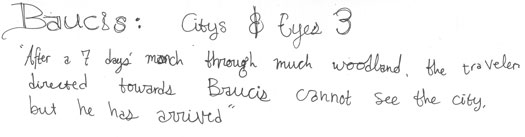 Baucis: Citys & Eyes 3
"After a 7 days' march through much woodland, the traveler
directed towards Baucis cannot see the city,
but he has arrived"